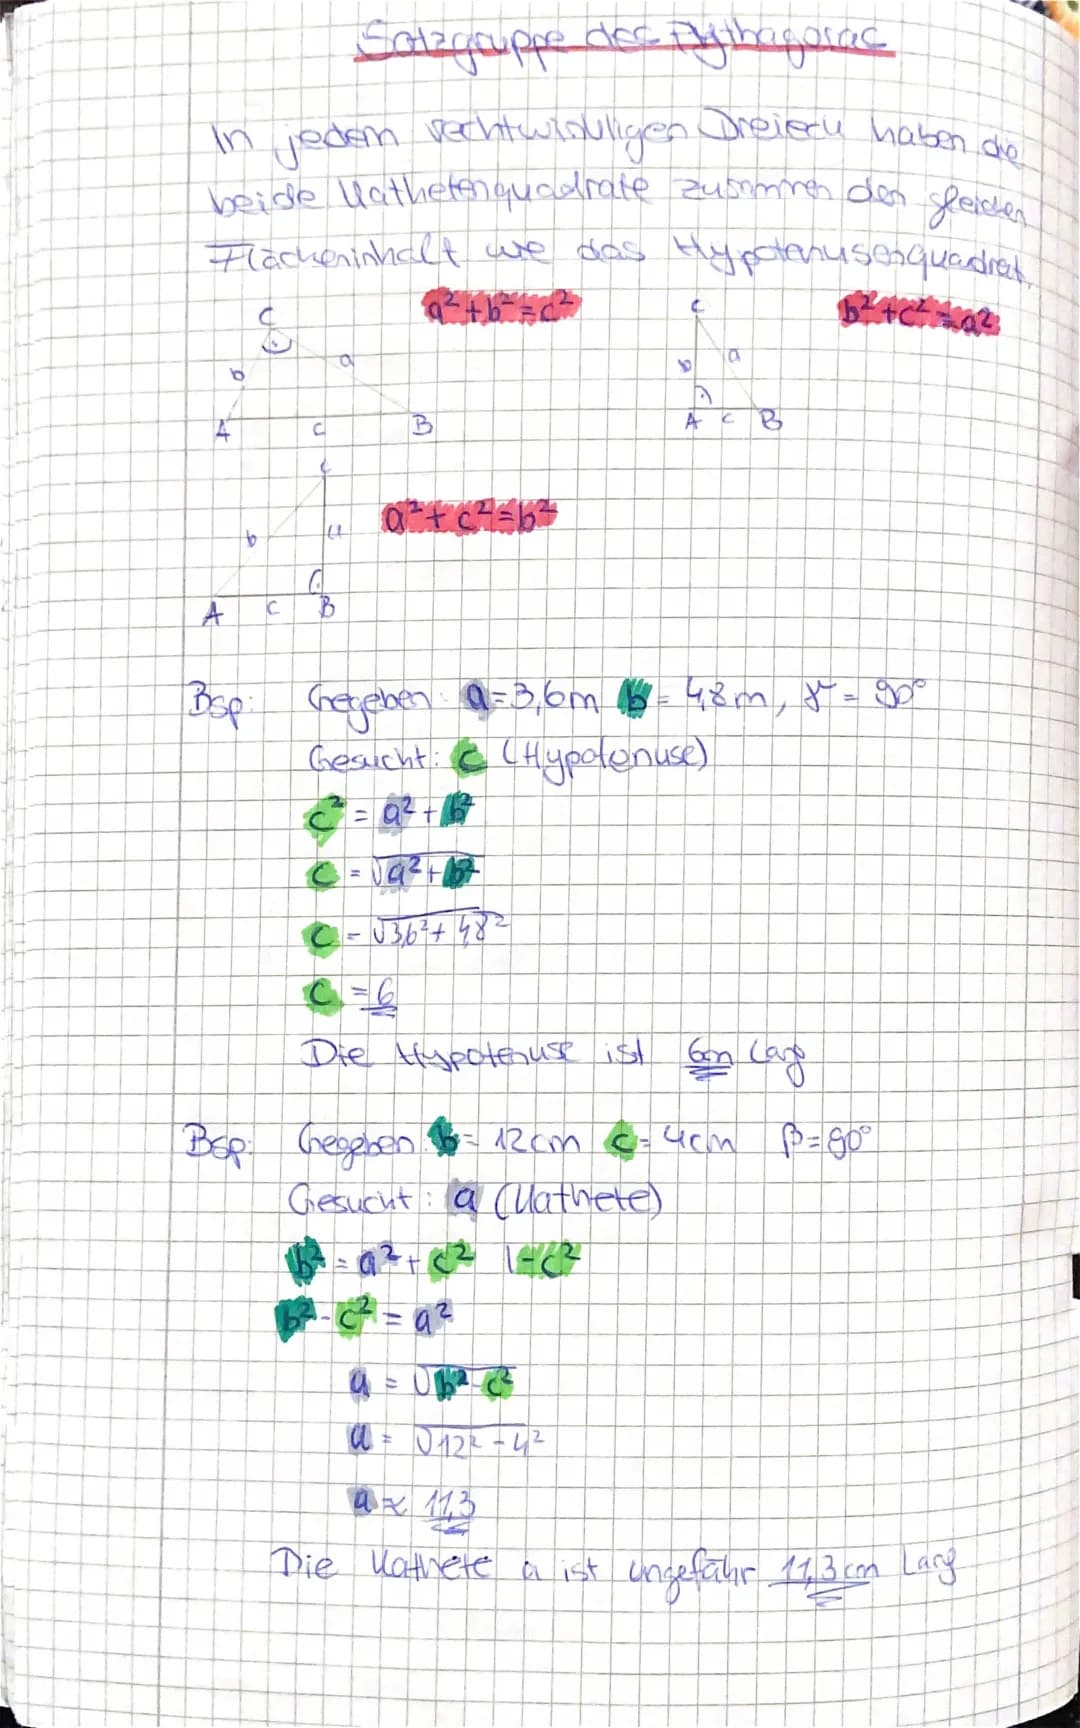 Satzgruppe des Pythagoras
In jedem rechtwinkligen Dreieck haben die
beide Kathetenquadrate zusammen den gleichen
Flächeninhalt wie das Hypotenusenquadrat.
a²+b²=c²
b²+c²=a²
C
b
a
A
c
B
C
b
a
A c B
a²+c²=b²
C
b
a
A c B
Bsp: Gegeben: a=3,6m b=4,8m, γ = 90°
Gesucht: c (Hypotenuse)
c² = a²+b²
c = √a²+b²
c = √3,6²+4,8²
c = 6
Die Hypotenuse ist 6m lang
Bsp: Gegeben: b= 12cm c= 4cm β=90°
Gesucht: a (Kathete)
b² = a²+c² |-c²
b²-c² = a²
a = √b²-c²
a = √12²-4²
a ≈ 11,3
Die Kathete a ist ungefähr 11,3cm lang